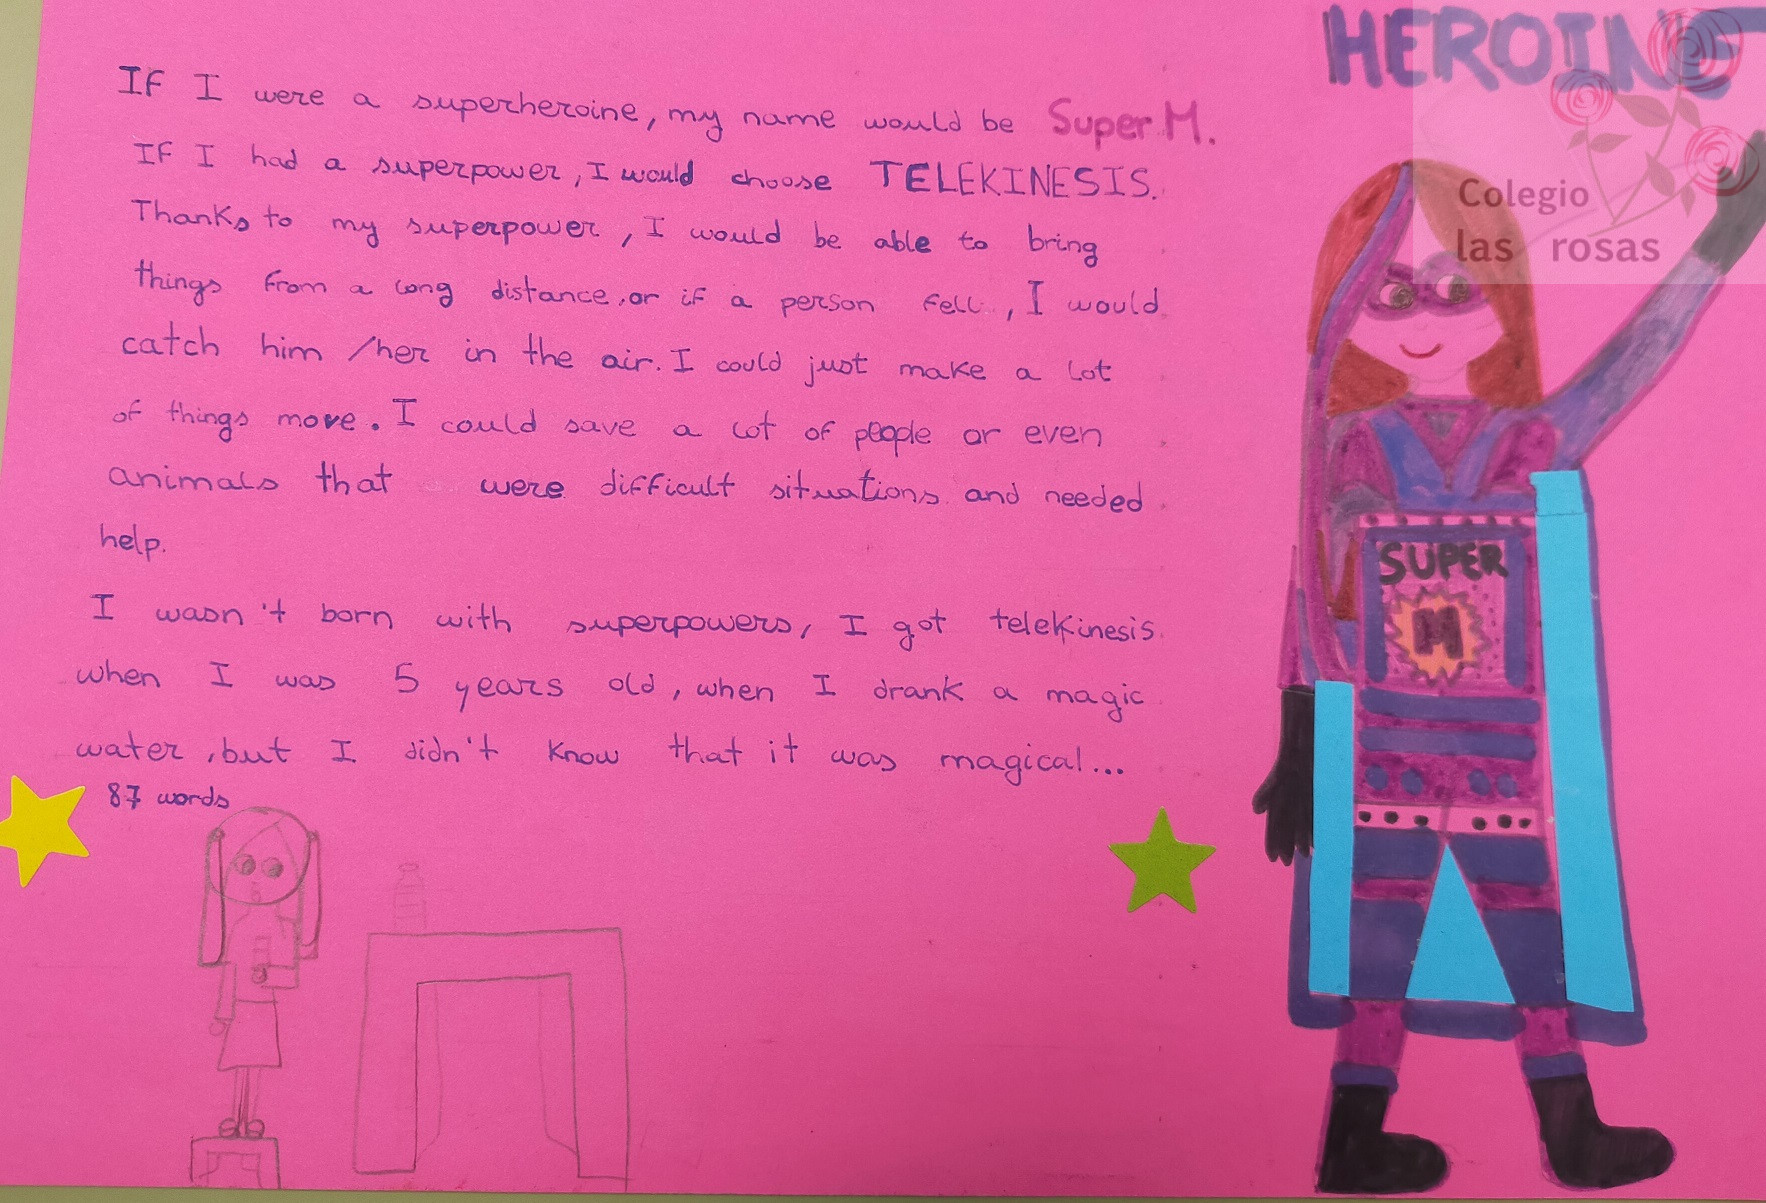 HEROINE
If I were a superheroine, my name would be Super M.
If I had a superpower, I would choose TELEKINESIS.
Thanks to my superpower, I would be able to bring
things from a long distance, or if a person fell, I would
catch him /her in the air. I could just make a lot
of things move. I could save a lot of people or even
animals that were difficult situations and needed
help.
I wasn't born with superpowers, I got telekinesis
when I was 5 years old, when I drank a magic
water, but I didn't know that it was magical...
87 words
Colegio
las rosas
SUPER
M